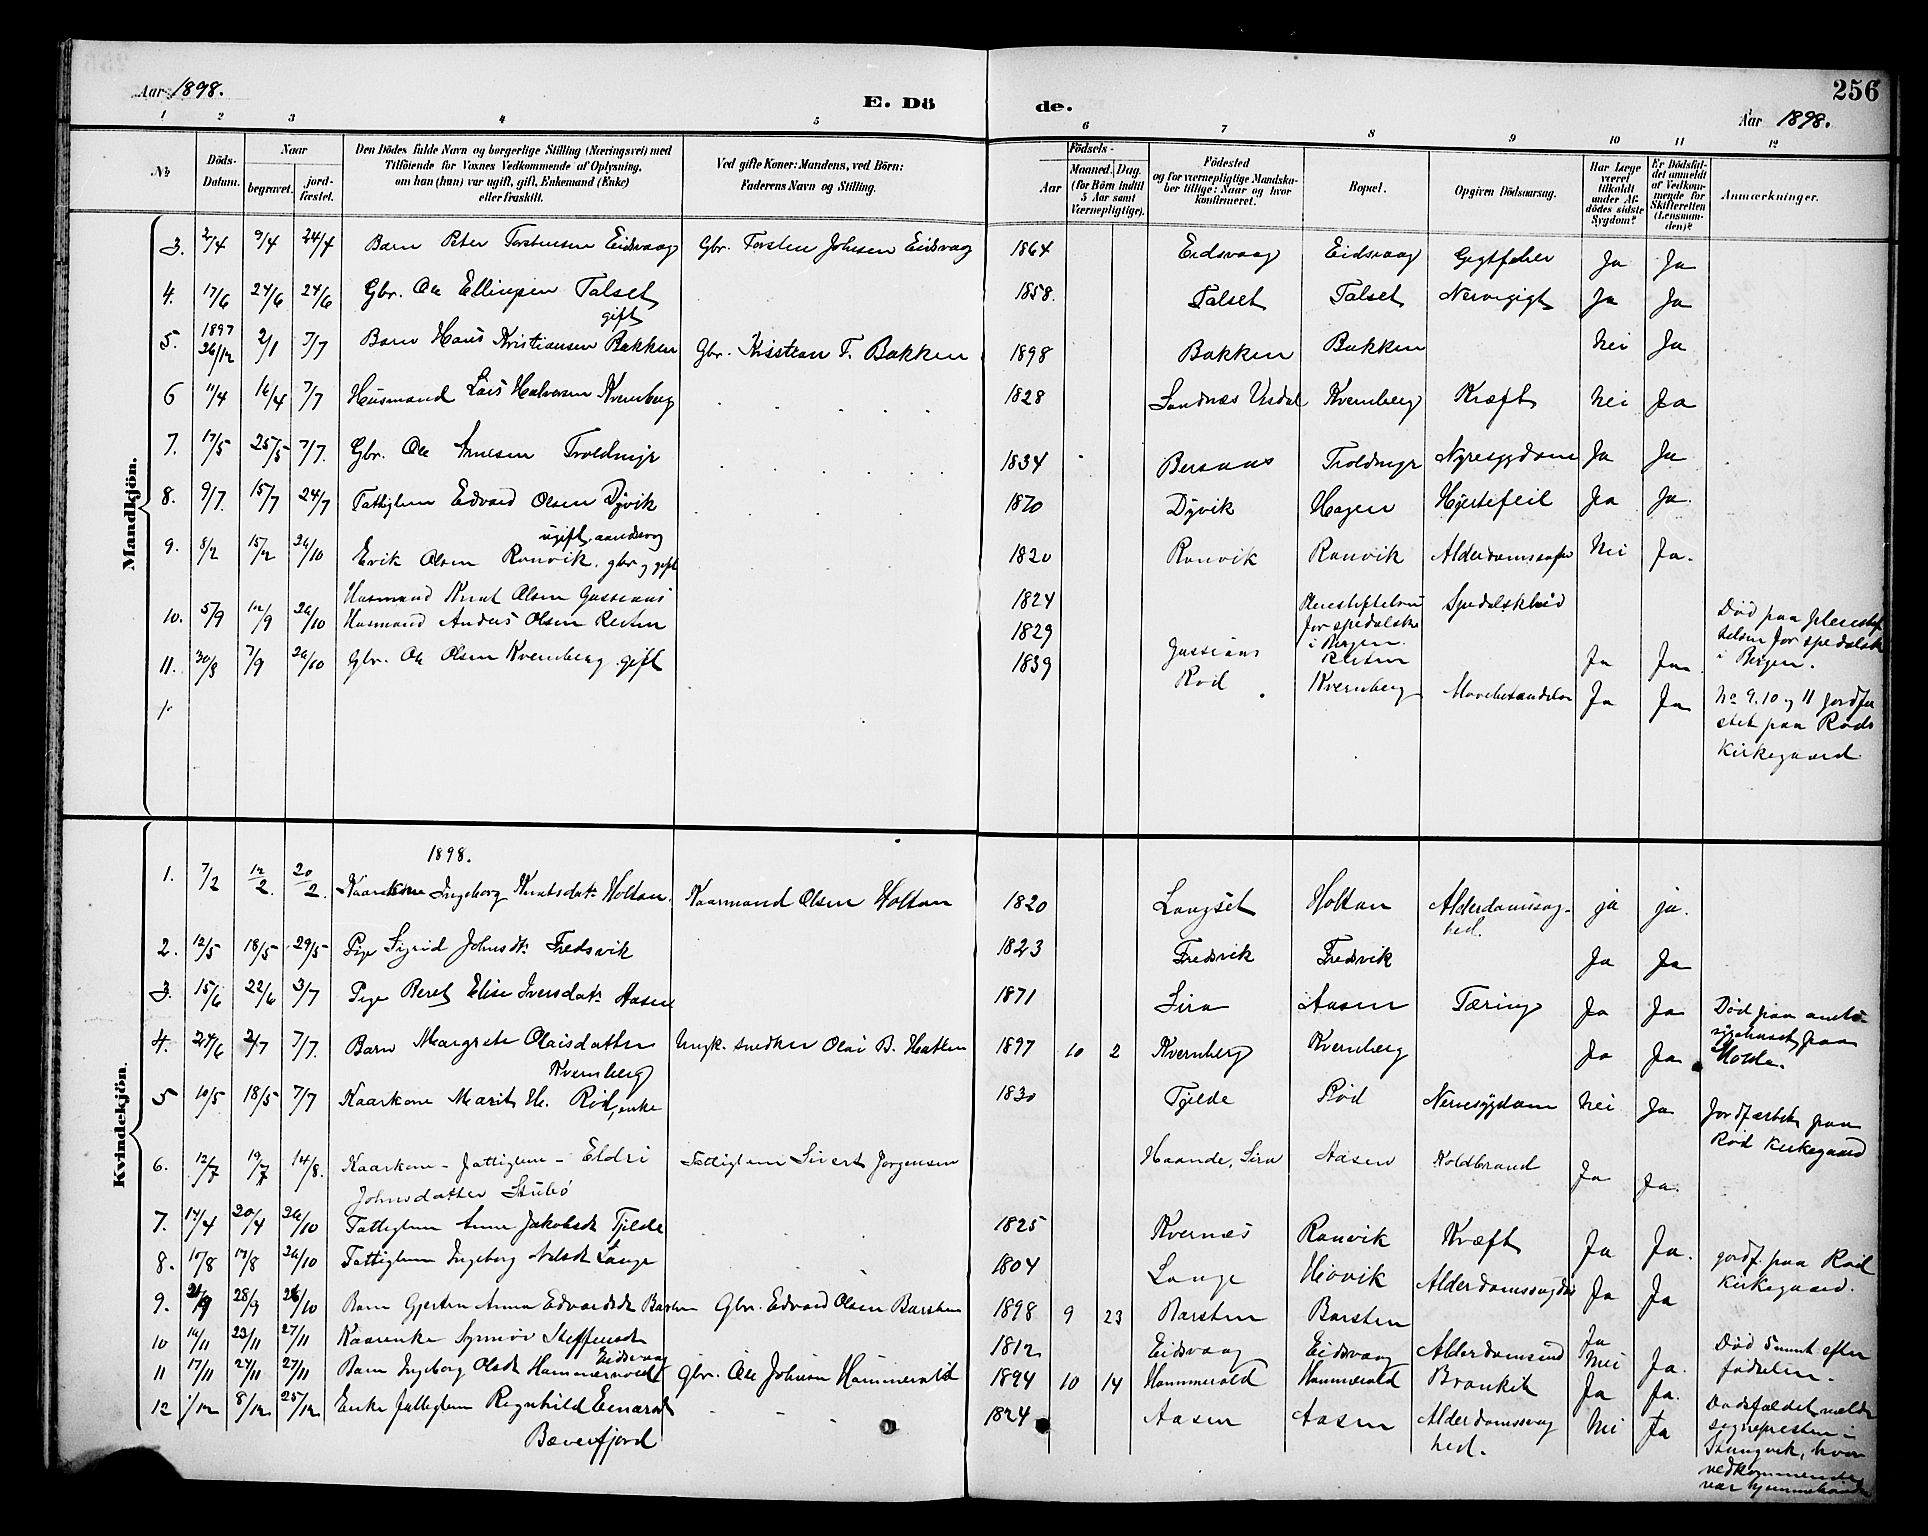 256
Aar 1898.
E. Dö
de.
Aar 1898.
1 2 3 4 5 6 7 8 9 10 11 12
№
Döds-Datum.
Naar
begravet.
jord-fæstet.
Den Dödes fulde Navn og borgerlige Stilling (Næringsvei) med
Tilföiende for Voxnes Vedkommende af Oplysning,
om han (hun) var ugift, gift, Enkemand (Enke)
eller fraskilt.
Ved gifte Koner: Mandens, ved Börn:
Faderens Navn og Stilling.
Födsels-
Aar
Maaned. Dag.
(for Börn indtil
5 Aar samt
Værnepligtige).
Födested
og for værnepligtige Mandska-
ber tillige: Naar og hvor
konfirmeret.
Bopæl.
Opgiven Dödsaarsag.
Har Læge
været
tilkaldt
under Af-
dödes sidste
Sygdom?
Er Dödsfal-
det anmeldt
af Vedkom-
mende for
Skifteretten
(Lensman-
den)?
Anmærkninger.
Mandkjön.
3. 2/4 9/4 24/4 Barn Peter Torstensen Eidsvaag Gbr. Torsten Johnsen Eidsvaag 1864 Eidsvaag Eidsvaag Gigtfeber Ja Ja
4. 17/6 24/6 24/6 Gbr. Ole Ellingsen Talset 1858. Talset Talset Nervegigt Ja Ja
gift
5. 1897 26/12 2/1 3/7 Barn Hans Kristiansen Bakken Gbr. Kristian T. Bakken 1898 Bakken Bakken Nei Ja
6 11/4 16/4 7/7 Husmand Lars Halvorsen Kvernberg 1828 Sandnæs Kvernberg Kræft Nei Ja
7. 17/5 25/5 7/7. Gbr. Ole Arnesen Troldmyr 1834 Troldmyr Nyresygdom Ja Ja
8. 9/7 15/7 24/7 Fattiglem Edvard Olsen Dyvik 1870 Dyvik Hagen Hjertefeil Ja Ja.
ugift, aandssvag
9. 8/2 15/2 26/10 Erik Olsen Ranvik. gbr og gift 1820 Ranvik Ranvik Nei Ja.
Husmand Knut Olsen 1824 Pleiestiftelsen for spedalske i Bergen. Spedalskhed Død paa pleiestif-
telsen for spedalske
i Bergen.
10. 5/9 12/9 26/10 Husmand Anders Olsen 1829 Ja Ja
11. 30/8 7/9 26/10 Gbr. Ole Olsen Kvernberg gift 1839 Rød Kvernberg Ja Ja No 9, 10 og 11 jordfæ
stet paa Røds
Kirkegaard
Kvindekjön.
1898.
1. 7/2 12/2. 20/2. Kaarkone Ingeborg Knutsdatr Holtan. Kaarmand Olsen Holtan 1820 Langset Holtan Alderdomssvag-
hed. ja ja.
2. 12/5 18/5 29/5 Pige Sigrid Johnsdtr Fredsvik 1823 Fredsvik Fredsvik Ja Ja
3. 15/6 22/6 3/7 Pige Beret Elise Iversdatr Aasen 1871 Sira Aasen Tæring Ja Ja Død paa amts-
sygehuset paa
Molde.
4. 24/6 2/7 7/7. Barn Margrete Olaisdatter Ungk. snedker Olai B. Hatten 1897 10 2 Kvernberg Kvernberg Ja Ja
Kvernberg
5 10/5 18/5 7/7 Kaarkone Marit H. Rød, enke 1830 Tjelde Rød Nervesygdom Nei Ja Jordfæstet paa
Rød Kirkegaard
6. 12/7 19/7 14/8. Kaarkone - fattiglem - Eldri Fattiglem Sivert Jørgensen Haande, Sira Aasen Koldbrand Ja Ja.
Johnsdatter Stubø
7. 14/4 20/4 26/10 Fattiglem Anne Jakobsdtr Tjelde 1825 Kvernæs Ranvik Kræft Ja Ja.
8. 10/8 17/8 26/10 Fattiglem Ingeborg Nilsdtr Lange 1804 Lange Ja Ja jordf. paa Rød
Kirkegaard.
9. 28/9 26/10 Barn Gjertru Anna Edvardsdtr Barsten Gbr. Edvard Olsen Barsten 1898 9 23 Barsten Barsten
10 16/11 23/11 27/11 Kaarenke Synnøv Steffensdtr 1812 Eidsvaag Eidsvaag Ja Nei Ja. Død 5 mint. efter
fødselen.
Eidsvaag
11 17/11 24/11 27/11 Barn Ingeborg Olsdtr Hammervold Gbr. Ole Johnson Hammervold 1894 10 14 Hammervold Hammervold Bronkit Ja Ja.
12 1/12 8/12 25/12 Enke fattiglem Ragnhild Einarsd 1824 Aasen Aasen Alderdomssvag
hed. Nei Ja Dødsfaldet meldt
sognepresten i
Stangvik, hvor
vedkommende
var hjemmehørende
Bæverfjord